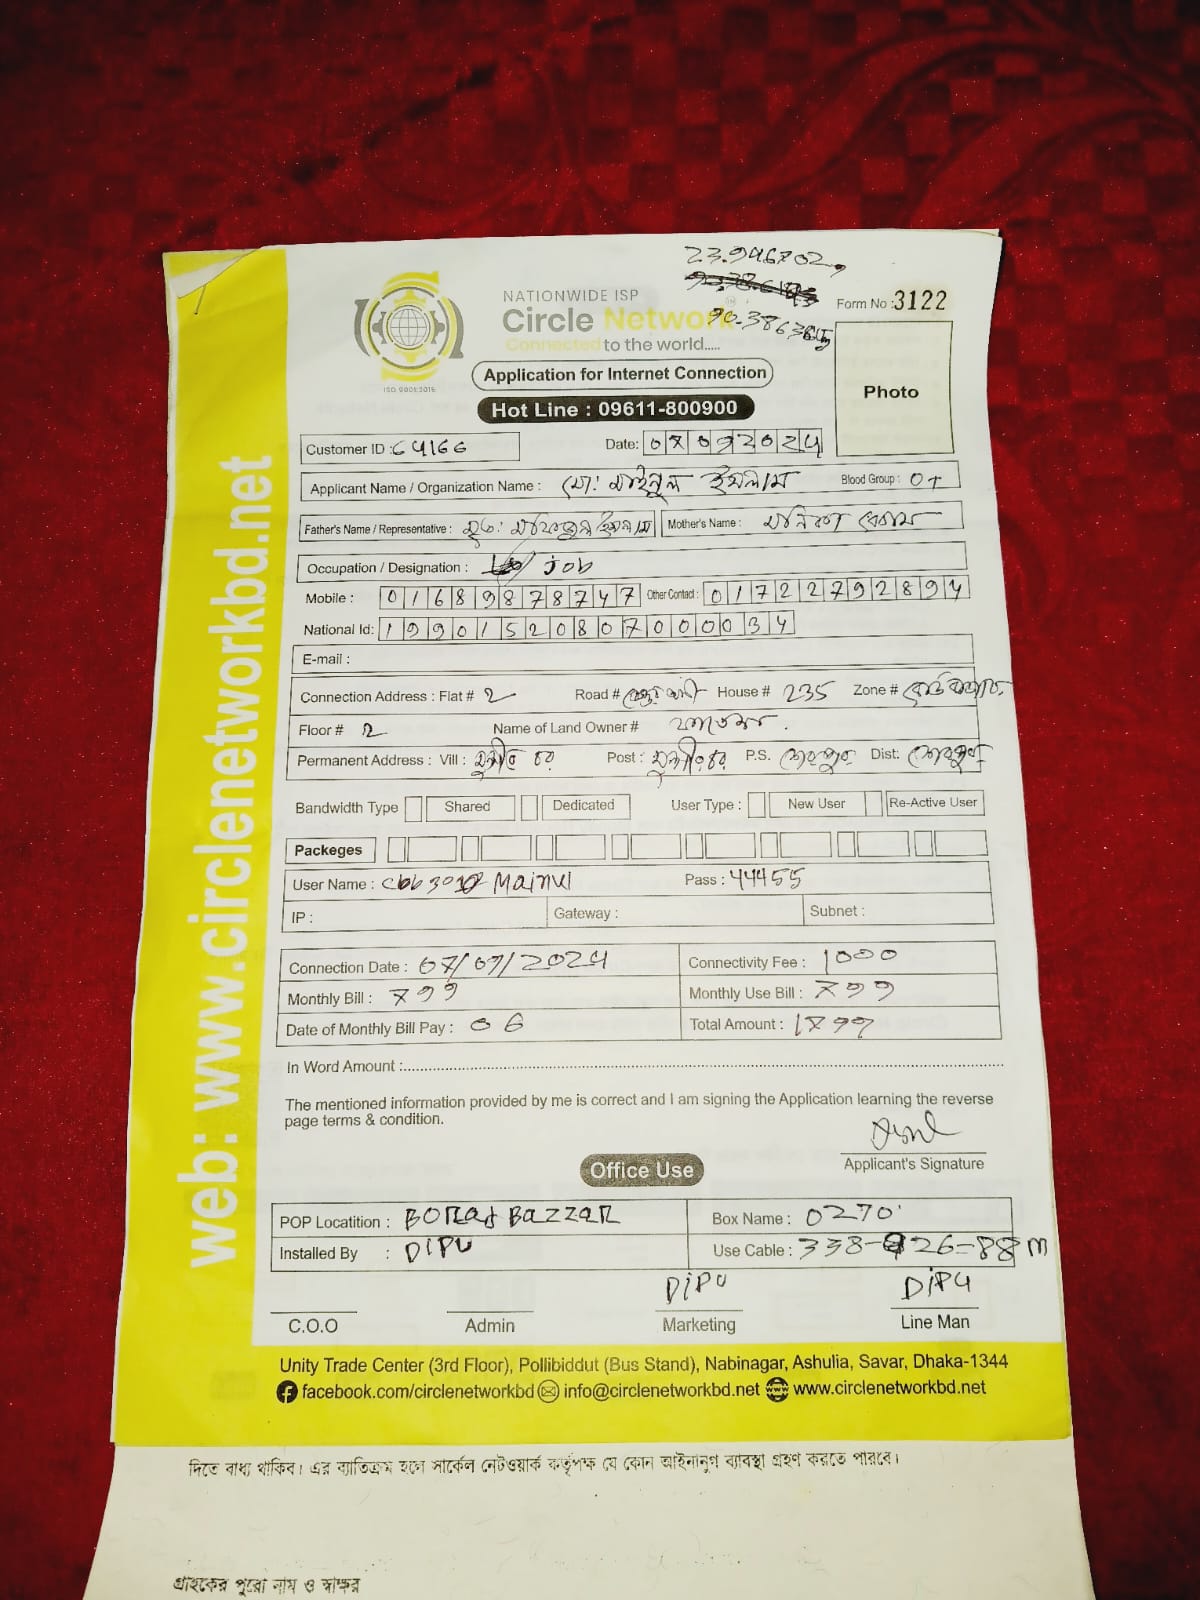 23.946702,
Form No : 3122
NATIONWIDE ISP
Circle Network
90.38636
Connected to the world.....
ISO 9001:2015
Application for Internet Connection
Photo
Hot Line : 09611-800900
Customer ID : C4166 Date: 07092024
Applicant Name / Organization Name : মো: মাইনুল ইসলাম Blood Group : O+
Father's Name / Representative : মৃত: মফিজুল ইসলাম Mother's Name : মনিকা বেগম
Occupation / Designation : job
Mobile : 01689878747 Other Contact : 01722792894
National Id: 19901520807000034
E-mail :
Connection Address : Flat # 2 Road # House # 235 Zone #
Floor # 2 Name of Land Owner # ফাতেমা.
Permanent Address : Vill : মুন্সীর চর Post : মুন্সীরচর P.S. শেরপুর Dist: শেরপুর
Bandwidth Type Shared Dedicated User Type : New User Re-Active User
Packeges
User Name : Mainul Pass : 44455
IP : Gateway : Subnet :
Connection Date : 07/09/2024 Connectivity Fee : 1000
Monthly Bill : 799 Monthly Use Bill : 799
Date of Monthly Bill Pay : 06 Total Amount : 1799
In Word Amount :
The mentioned information provided by me is correct and I am signing the Application learning the reverse
page terms & condition.
Applicant's Signature
Office Use
POP Locatition : BORAJ BAZZAR Box Name : 0270
Installed By : DIPU Use Cable : 338-926=88 m
DIPU DIPU
C.O.O Admin Marketing Line Man
Unity Trade Center (3rd Floor), Pollibiddut (Bus Stand), Nabinagar, Ashulia, Savar, Dhaka-1344
facebook.com/circlenetworkbd info@circlenetworkbd.net www.circlenetworkbd.net
web: www.circlenetworkbd.net
দিতে বাধ্য থাকিব। এর ব্যতিক্রম হলে সার্কেল নেটওয়ার্ক কর্তৃপক্ষ যে কোন আইনানুগ ব্যাবস্থা গ্রহণ করতে পারবে।
গ্রাহকের পুরো নাম ও স্বাক্ষর